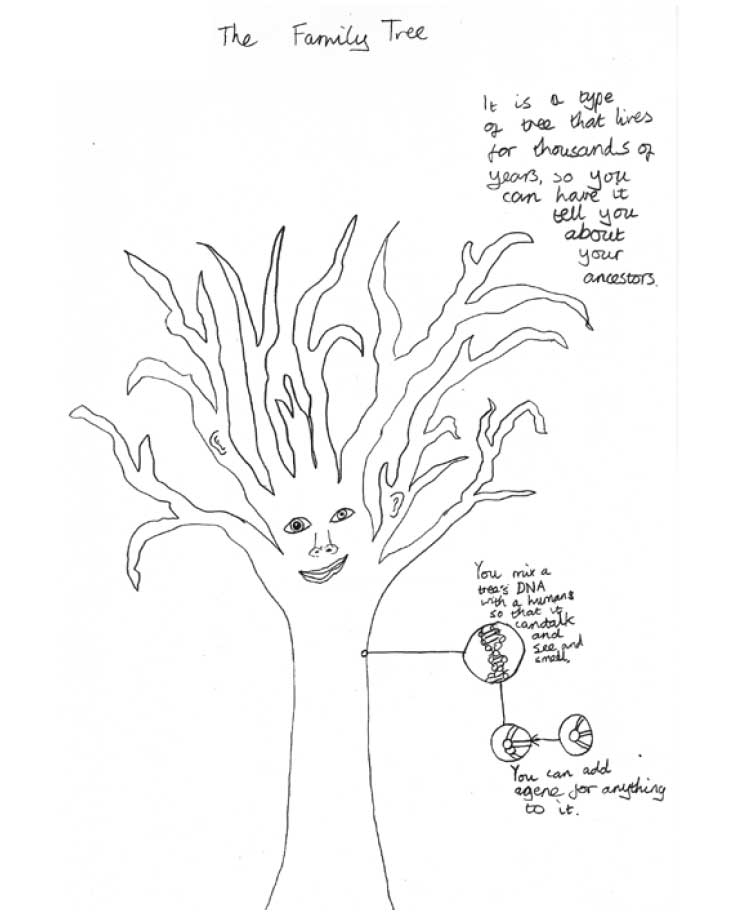 The Family Tree
It is a type
of tree that lives
for thousands of
years, so you
can have it
tell you
about
your
ancestors.
You mix a
tree's DNA
with a humans
so that it
can talk
and
see and
smell.
You can add
a gene for anything
to it.